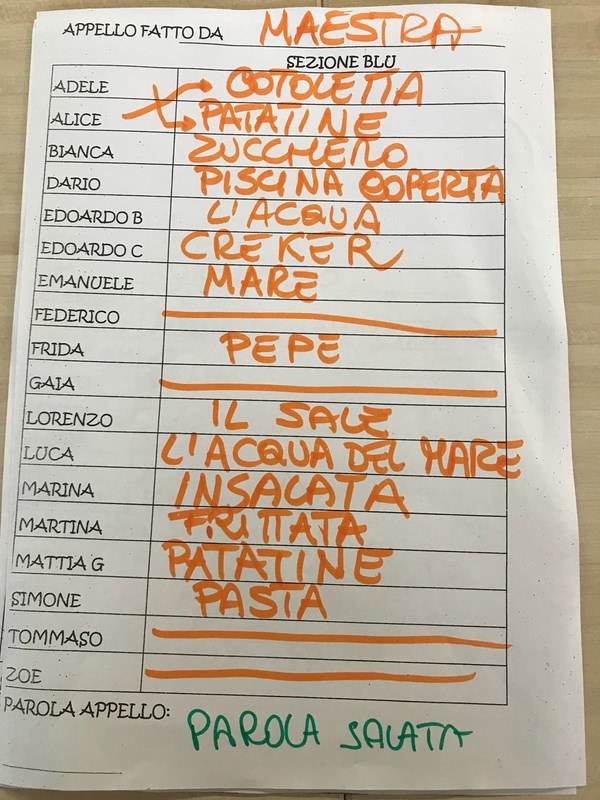 APPELLO FATTO DA MAESTRA
SEZIONE BLU
ADELE COTOLETTA
ALICE PATATINE
BIANCA ZUCCHERO
DARIO PISCINA COPERTA
EDOARDO B L'ACQUA
EDOARDO C CREKER
EMANUELE MARE
FEDERICO
FRIDA PEPE
GAIA
LORENZO IL SALE
LUCA L'ACQUA DEL MARE
MARINA INSALATA
MARTINA FRITTATA
MATTIA G PATATINE
SIMONE PASTA
TOMMASO
ZOE
PAROLA APPELLO: PAROLA SALATA